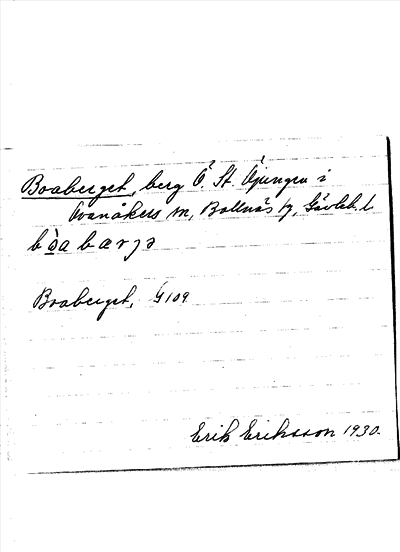 Boaberget, berg Ö. St. Öjungen i
Ovanåkers sn, Bollnäs tg, Gävleb. l
bòabærjə
Boaberget, G109
Erik Eriksson 1930.